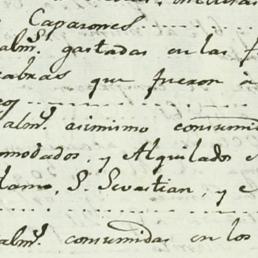 Caparones
alm.s gastadas en las
cabras que fueron
alm.s asimismo consumi
modados, y Alquilados
lamo, S. Sevastian, y
alm.s consumidas en los